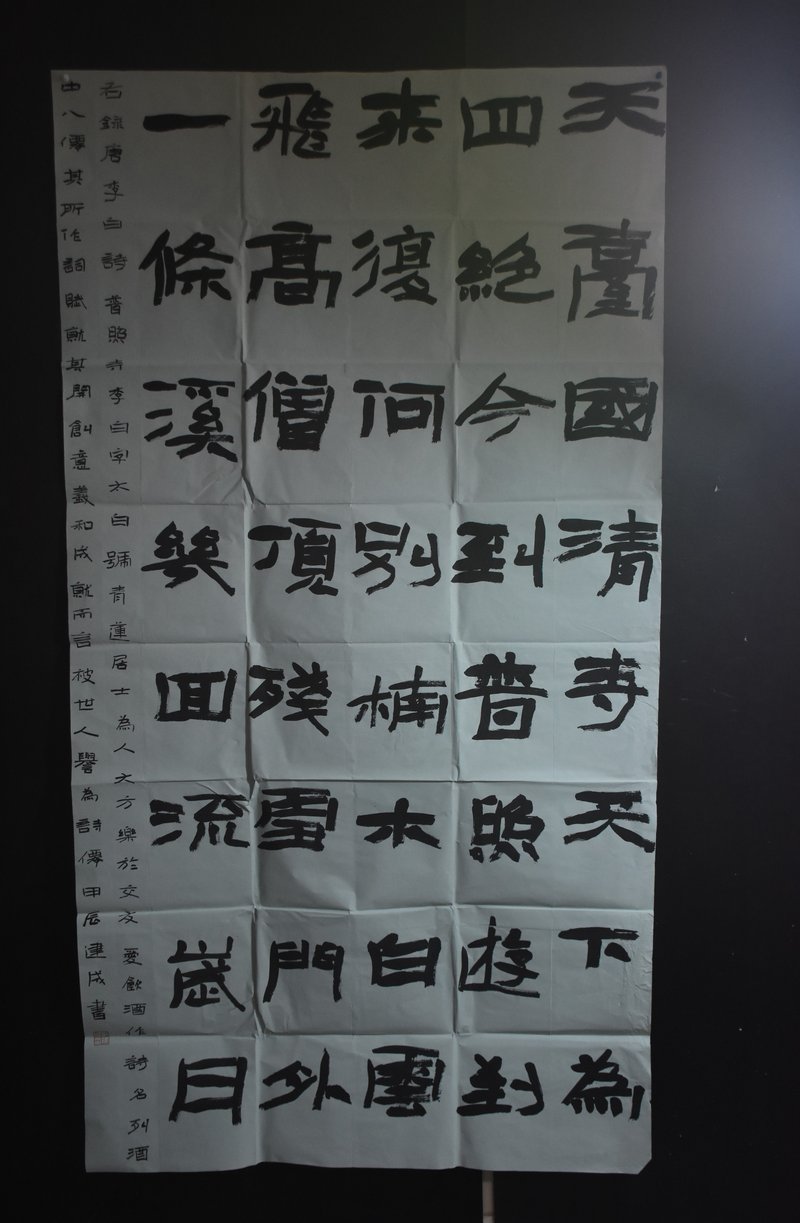 天臺國清寺天下為
四絕今到普照遊到
来復何别楠木白雲
飛高僧頂殘雪門外
一條溪幾回流歲月
右錄唐李白詩普照寺李白字太白號青蓮居士為人大方樂於交友愛飲酒作詩名列酒
中八僊其所作詞賦就其開創意義和成就而言被世人譽為詩僊甲辰建成書